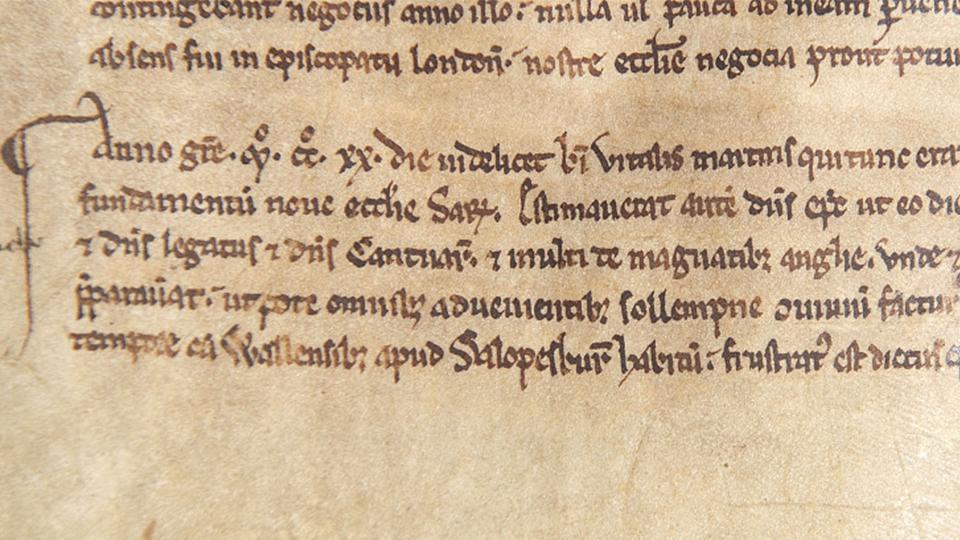 contingebant negociis anno illo. nulla ul pauca ad meam p̱uene
absens fui in episcopatu londoñ. nostre eccl̄ie negocia prout potui
Anno gr̄e. m̊. cc̊. xx. die uidelicet bī Vitalis martiris qui tunc era
fundamentū noue eccl̄ie Saꝝ. Estimauerat autē dn̄s ep̄c ut eo die
⁊ dn̄s legatus ⁊ dn̄s Cantuar̄. ⁊ multi de magnatibꝫ anglie. vnde ⁊
p̄parauat. utpote omnibꝫ aduenientibꝫ sollempne omniū factur
tempore cū Wallensibꝫ apud Salopesbur̄ habitū. frustrat᾿ est dictus